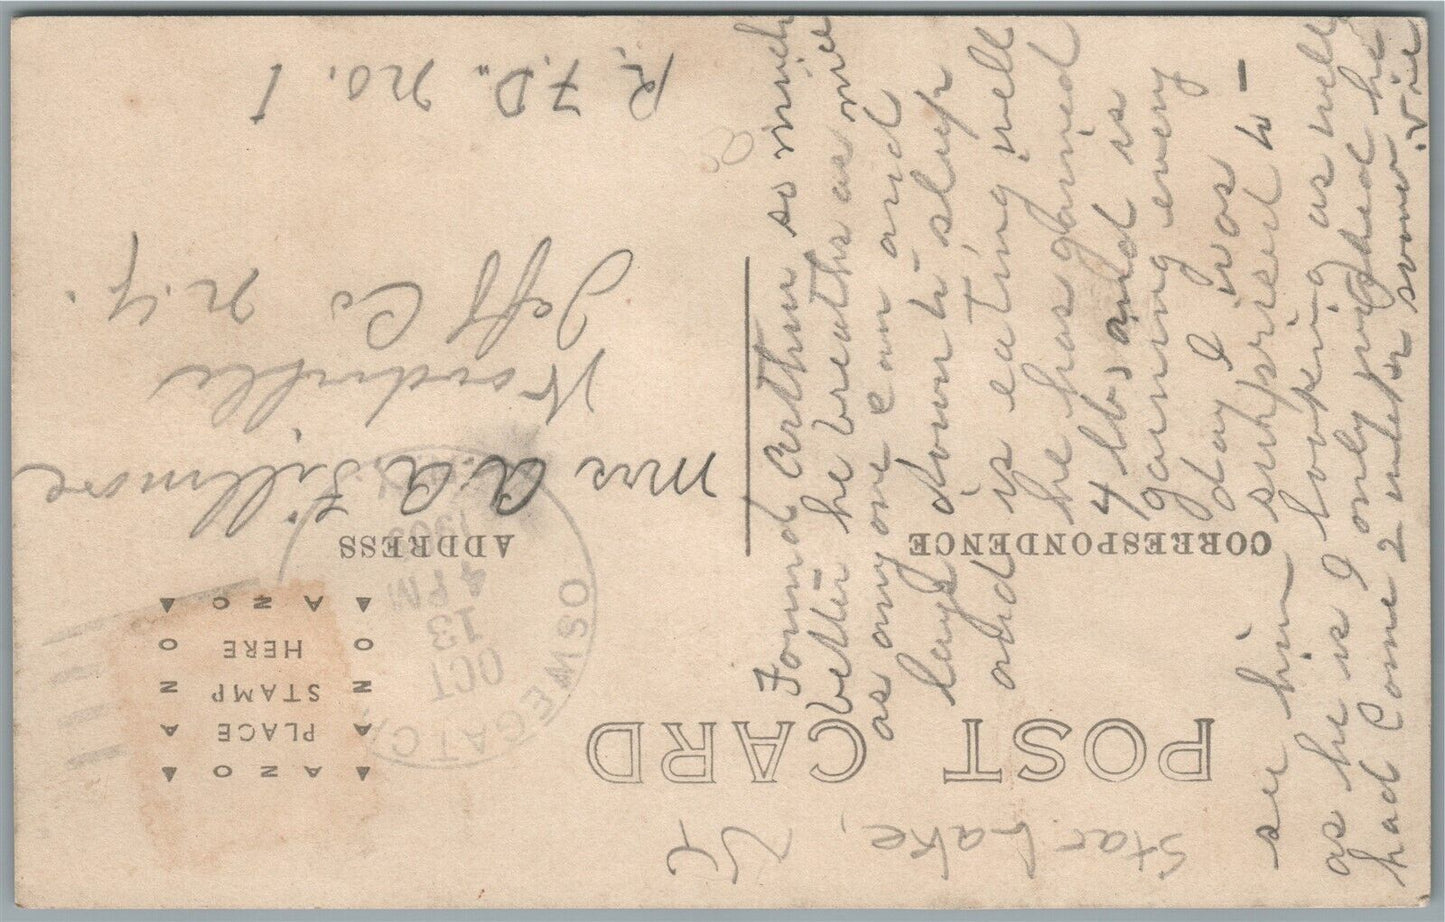 POST CARD
CORRESPONDENCE
ADDRESS
AZO
PLACE
STAMP
HERE
AZO
OSWEGATC
OCT
13
4 PM
Mrs A. A. Fillmore
Jeff Co N.Y.
R.F.D. no. 1
Star Lake,
Found Arthur so much
better he breaths as nice
as any one can and
lays down to sleep
and is eating well
he has gained
4 lbs and is
gaining every
day I was
suhpsried to -
see him
as he is looking as well
as he is I only wished he
had Come 2 weeks sooner